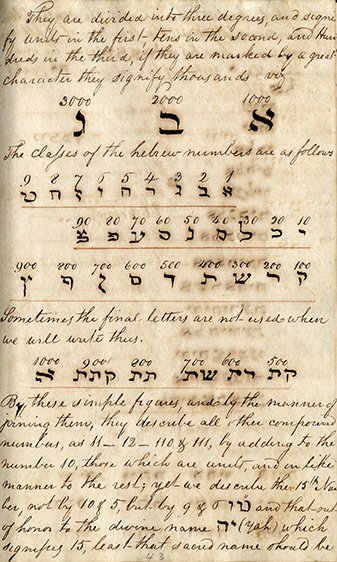 They are divided into three degrees, and signi
fy units in the first tens in the second, and hun
dreds in the third, if they are marked by a great
character they signify thousands viz
3000 2000 1000
א ב ג
The classes of the hebrew numbers are as follows
9 8 7 6 5 4 3 2 1
א ב ג ד ה ו ז ח ט
90 80 70 60 50 40 30 20 10
י כ ל מ נ ס ע פ צ
900 800 700 600 500 400 300 200 100
ק ר ש ת ך ם ן ף ץ
Sometimes the final letters are not used when
we will write thus.
1000 900 800 700 600 500
תק תר תש תת תתק א
By these simple figures, and by the manner of
joining them, they describe all other compound
number, as 11 – 12 – 110 & 111, by adding to the
number 10, those which are units, and in like
manner to the rest; yet we describe the 15th Num
ber, not by 10 & 5, but by 9 & 6 טו and that out
of honor to the divine name יה (yah) which
signifies 15, least that sacred name should be
43